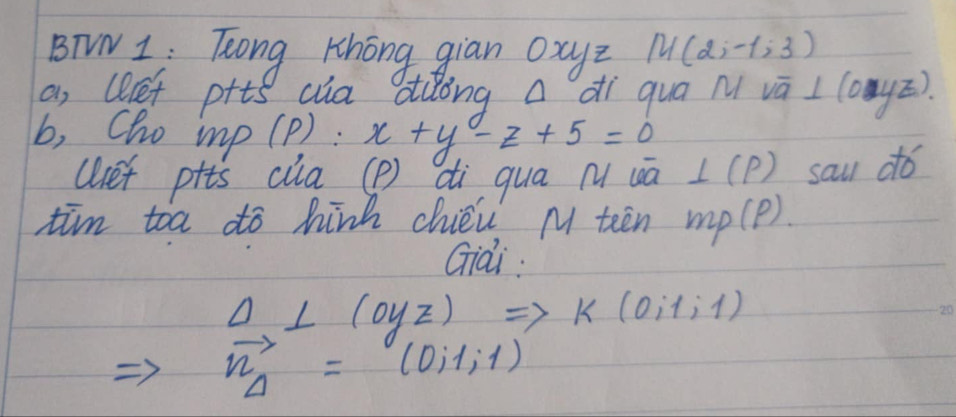 BTVN 1: Trong không gian Oxyz M(2;-1;3)
a, Viết ptts của đường Δ đi qua M và ⊥ (oyz).
b, Cho mp (P): x + y - z + 5 = 0
Viết ptts của (P) đi qua M và ⊥ (P) sau đó
tìm toạ độ hình chiếu M trên mp(P).
Giải:
Δ ⊥ (oyz) => K (0;1;1)
=> n⃗_Δ = (0;1;1)
20